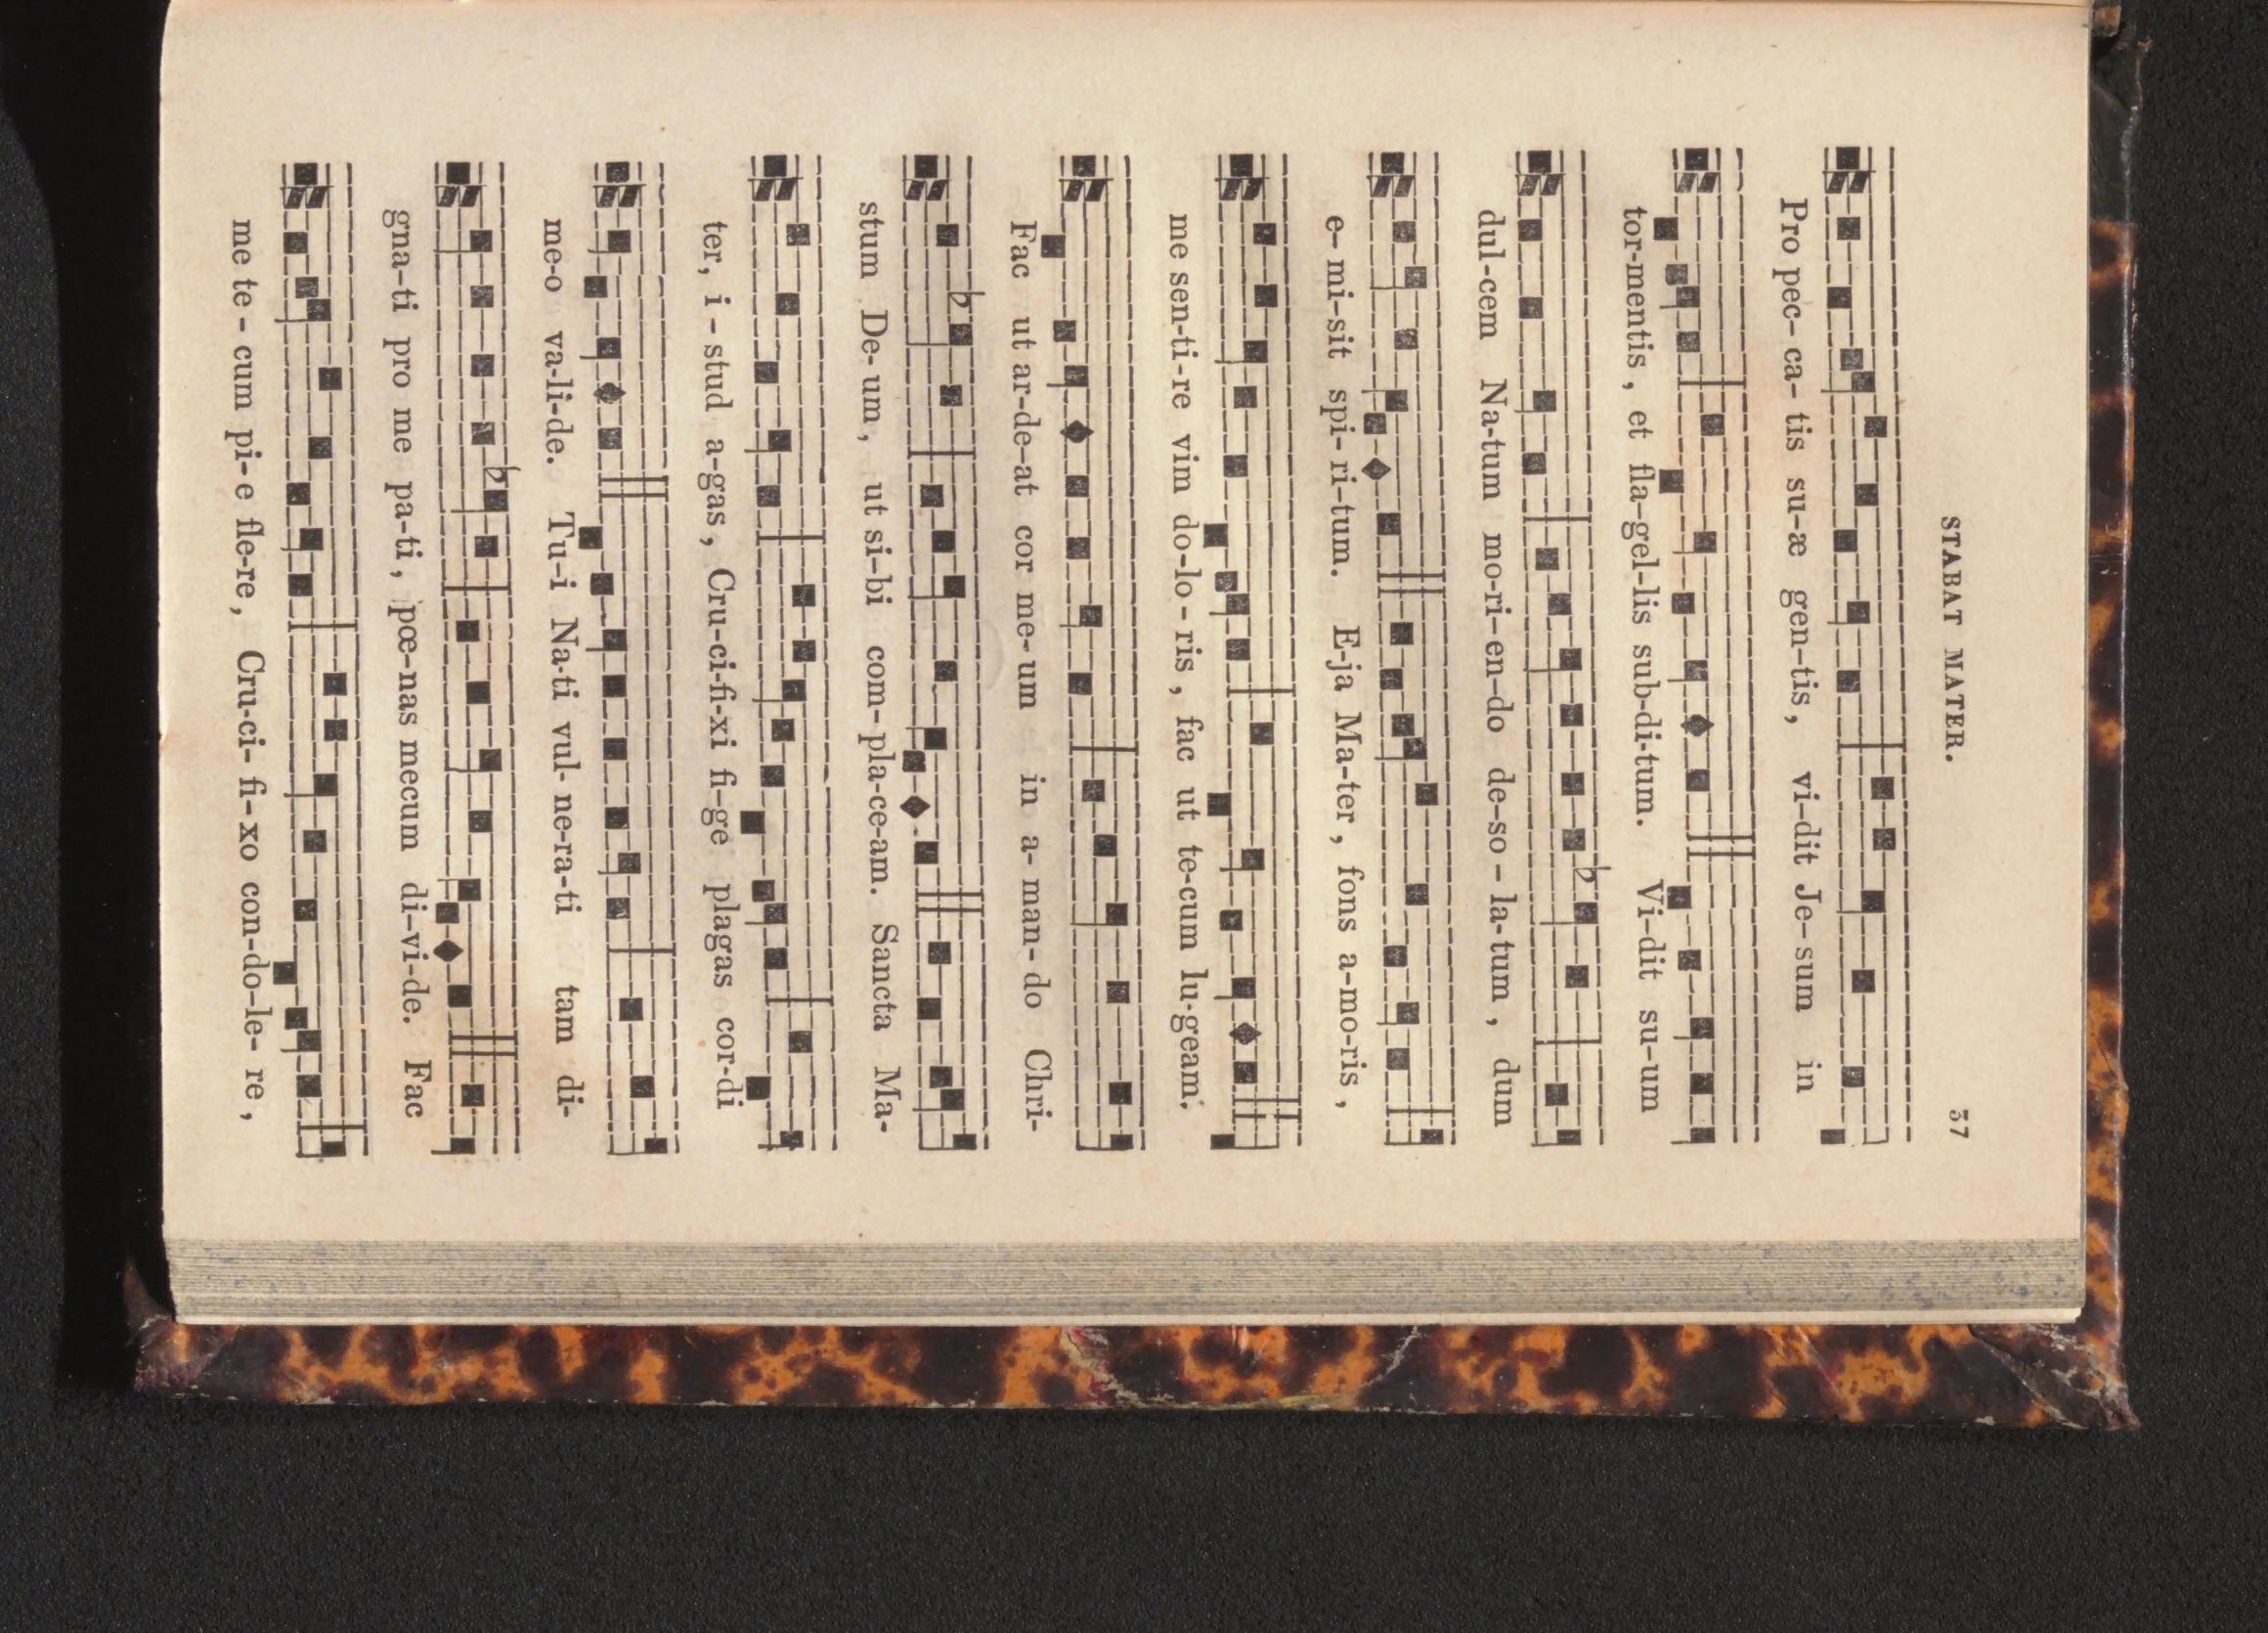 STABAT MATER. 37
Pro pec- ca- tis su-æ gen-tis, vi-dit Je-sum in
tor-mentis, et fla-gel-lis sub-di-tum. Vi-dit su-um
dul-cem Na-tum mo-ri-en-do de-so-la-tum, dum
e-mi-sit spi-ri-tum. E-ja Ma-ter, fons a-mo-ris,
me sen-ti-re vim do-lo-ris, fac ut te-cum lu-geam.
Fac ut ar-de-at cor me-um in a-man-do Chri-
stum De-um, ut si-bi com-pla-ce-am. Sancta Ma-
ter, i-stud a-gas, Cru-ci-fi-xi fi-ge plagas cor-di
me-o va-li-de. Tu-i Na-ti vul-ne-ra-ti tam di-
gna-ti pro me pa-ti, pœ-nas mecum di-vi-de. Fac
me te-cum pi-e fle-re, Cru-ci-fi-xo con-do-le-re,